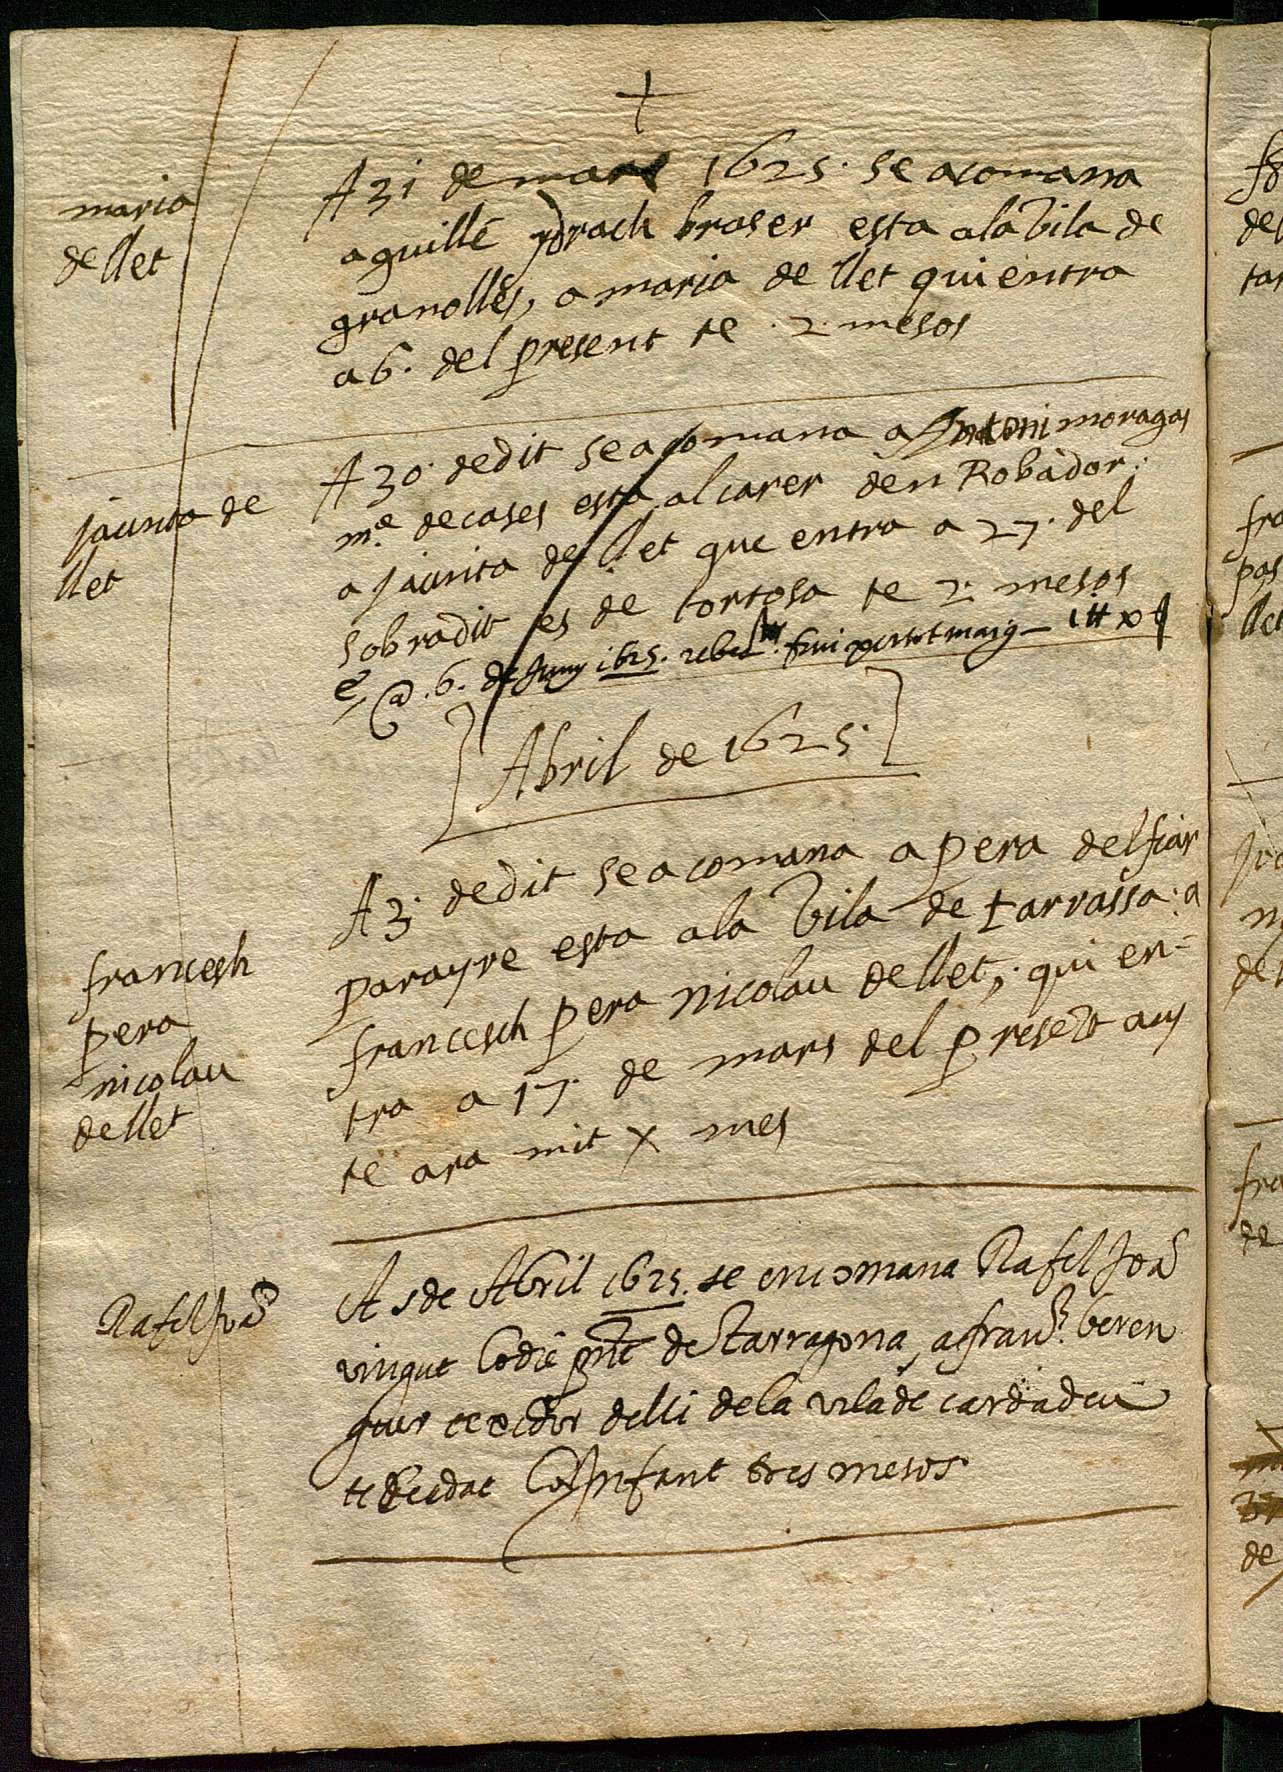 +
maria
de llet
A 31 de mars 1625. se acomana
a guille ydrach braser esta ala vila de
granolles, a maria de llet qui entra
a 6. del present te .2. mesos
jacinta de
llet
A 30. de dit se acomana a Antoni moragas
m.e de cases esta al carer den Robador.
a jacinta de llet que entra a 27. del
sobradit es de tortosa te 2. mesos
@ .6. de Juny 1625. per tot maig
[Abril de 1625.]
francesch
pera
nicolau
de llet
A 3. de dit se acomana a pera delfiar
parayre esta a la vila de tarrassa: a
francesch pera nicolau de llet, qui en-
tra a 17. de mars del present any
te ara mit x mes
Rafel Joã
A 5 de Abril 1625. se encomana Rafel Joã
vingut lo die pnt de Tarragona, a fran.ch beren
guer texidor de lli de la vila de cardadeu
te de edat lo Infant tres mesos.
fra
de